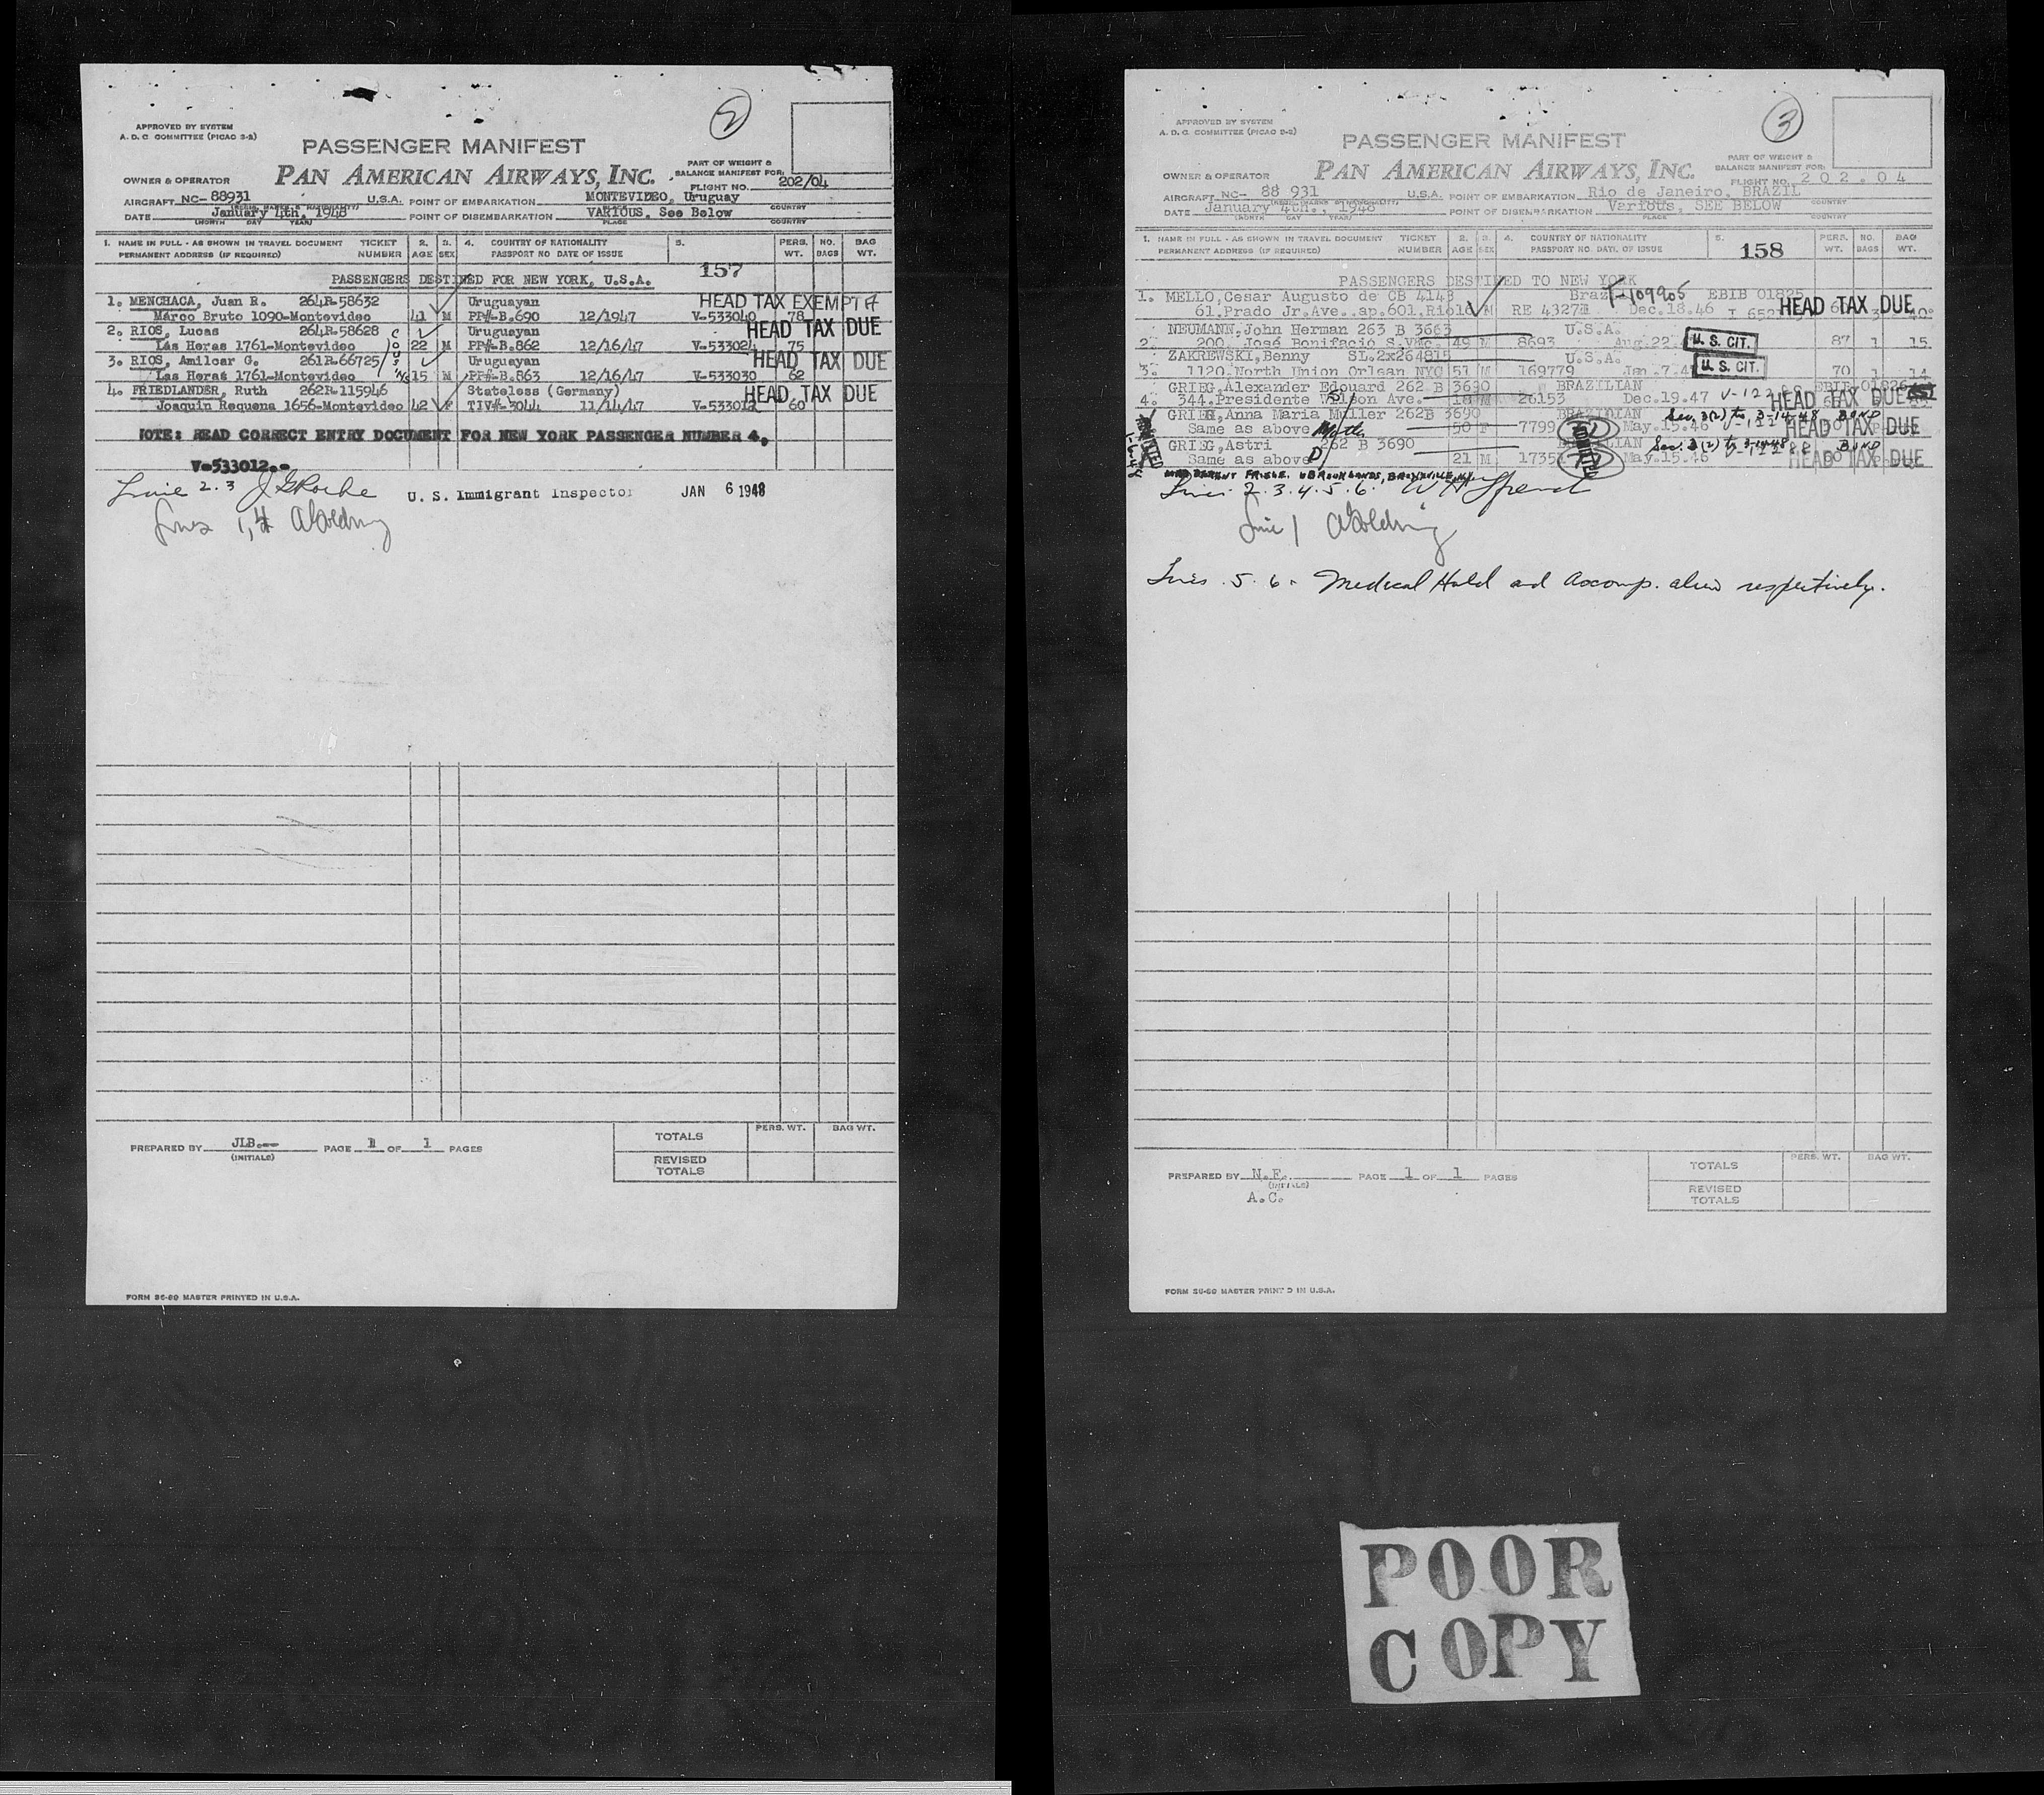 2
APPROVED BY SYSTEM
A. D. C. COMMITTEE (PICAO S-2)
PASSENGER MANIFEST
OWNER & OPERATOR PAN AMERICAN AIRWAYS, INC.
PART OF WEIGHT &
BALANCE MANIFEST FOR:
FLIGHT NO. 202/04
AIRCRAFT NC- 88931 U.S.A. POINT OF EMBARKATION MONTEVIDEO, Uruguay
DATE January 4th, 1948 POINT OF DISEMBARKATION VARIOUS. See Below
(MONTH DAY YEAR) PLACE COUNTRY
1. NAME IN FULL - AS SHOWN IN TRAVEL DOCUMENT TICKET 2. 3. 4. COUNTRY OF NATIONALITY 5. PERS. NO. BAG
PERMANENT ADDRESS (IF REQUIRED) NUMBER AGE SEX PASSPORT NO DATE OF ISSUE WT. BAGS WT.
157
PASSENGERS DESTINED FOR NEW YORK, U.S.A.
1. MENCHACA, Juan R. 264R-58632 Uruguayan HEAD TAX EXEMPT
Marco Bruto 1090-Montevideo 41 M PP#-B.690 12/1947 V-533040 78
2. RIOS, Lucas 264R-58628 Uruguayan HEAD TAX DUE
Las Heras 1761-Montevideo 22 M PP#-B.862 12/16/47 V-533024 75
3. RIOS, Amilcar G. 261R-66725 Uruguayan HEAD TAX DUE
Las Heras 1761-Montevideo 15 M PP#-B.863 12/16/47 V-533030 62
4. FRIEDLANDER, Ruth 262R-115946 Stateless (Germany) HEAD TAX DUE
Joaquin Requena 1656-Montevideo 42 F TIV#-3044 11/14/47 V-533012 60
NOTE: READ CORRECT ENTRY DOCUMENT FOR NEW YORK PASSENGER NUMBER 4,
V-533012.-
Line 2.3 J G Roche U. S. Immigrant Inspector JAN 6 1948
Lines 1, 4 A Golding
PREPARED BY JLB.-- PAGE 1 OF 1 PAGES
(INITIALS)
PERS. WT. BAG WT.
TOTALS
REVISED
TOTALS
FORM SC-60 MASTER PRINTED IN U.S.A.
3
APPROVED BY SYSTEM
A. D. C. COMMITTEE (PICAO S-2)
PASSENGER MANIFEST
OWNER & OPERATOR PAN AMERICAN AIRWAYS, INC.
PART OF WEIGHT &
BALANCE MANIFEST FOR:
FLIGHT NO. 202.04
AIRCRAFT NC- 88 931 U.S.A. POINT OF EMBARKATION Rio de Janeiro, BRAZIL
DATE January 4th., 1948 POINT OF DISEMBARKATION Various, SEE BELOW
(MONTH DAY YEAR) PLACE COUNTRY
1. NAME IN FULL - AS SHOWN IN TRAVEL DOCUMENT TICKET 2. 3. 4. COUNTRY OF NATIONALITY 5. PERS. NO. BAG
PERMANENT ADDRESS (IF REQUIRED) NUMBER AGE SEX PASSPORT NO. DATE OF ISSUE WT. BAGS WT.
158
PASSENGERS DESTINED TO NEW YORK
1. MELLO, Cesar Augusto de CB 4143 Braz EBIB HEAD TAX DUE
61.Prado Jr.Ave..ap.601.Rio 18 M RE Dec.18.46
NEUMANN,John Herman 263 B 3663 U.S.A.
2. 200. José Bonifacio S. 49 M 8693 Aug.22. U. S. CIT. 87 1 15.
ZAKREWSKI,Benny SL.2x264815 U.S.A.
3. 1120.North Union Orlean NYC 51 M 169779 Jan.7. U. S. CIT. 70 1 14
GRIEG,Alexander Edouard 262 B 3690 BRAZILIAN
4. 344.Presidente Wilson Ave. 18 M 26153 Dec.19.47 HEAD TAX DUE
GRIEG,Anna Maria Muller 262B 3690 BRAZILIAN Sec. 3(2) to 3-14-48 BOND
Same as above 50 F 7799 May.15.46 HEAD TAX DUE
GRIEG,Astri 262 B 3690 Sec. 3(2) to 3-14-48 BOND
Same as above 21 M May.15.46 HEAD TAX DUE
Lines 2.3.4.5.6.
Line 1 A Golding
Lines .5.6. Medical Hold and Accomp. alien respectively.
PREPARED BY N.F. PAGE 1 OF 1 PAGES
(INITIALS)
A.C.
PERS. WT. BAG WT.
TOTALS
REVISED
TOTALS
FORM SC-60 MASTER PRINTED IN U.S.A.
POOR
COPY